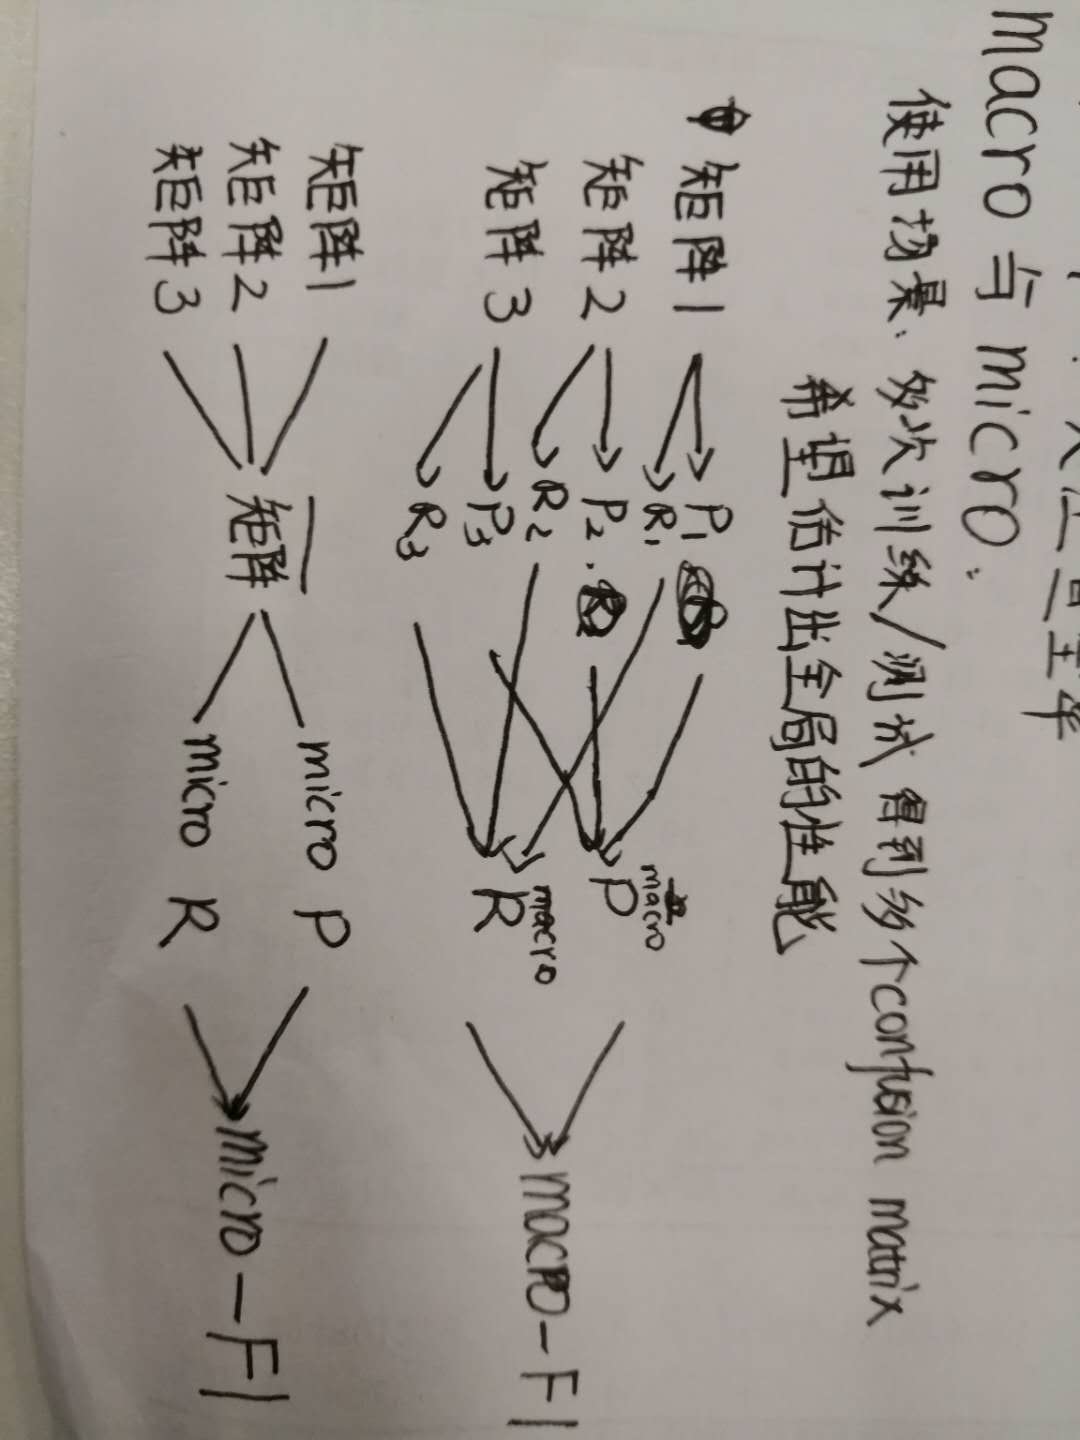 macro 与 micro.
使用场景: 多次训练/测试 得到多个confusion matrix
希望估计出全局的性能
矩阵1 P1 R1
矩阵2 P2. R2
矩阵3 P3 R3
macro P
macro R
macro-F1
矩阵1
矩阵2
矩阵3
矩阵
micro P
micro R
micro-F1